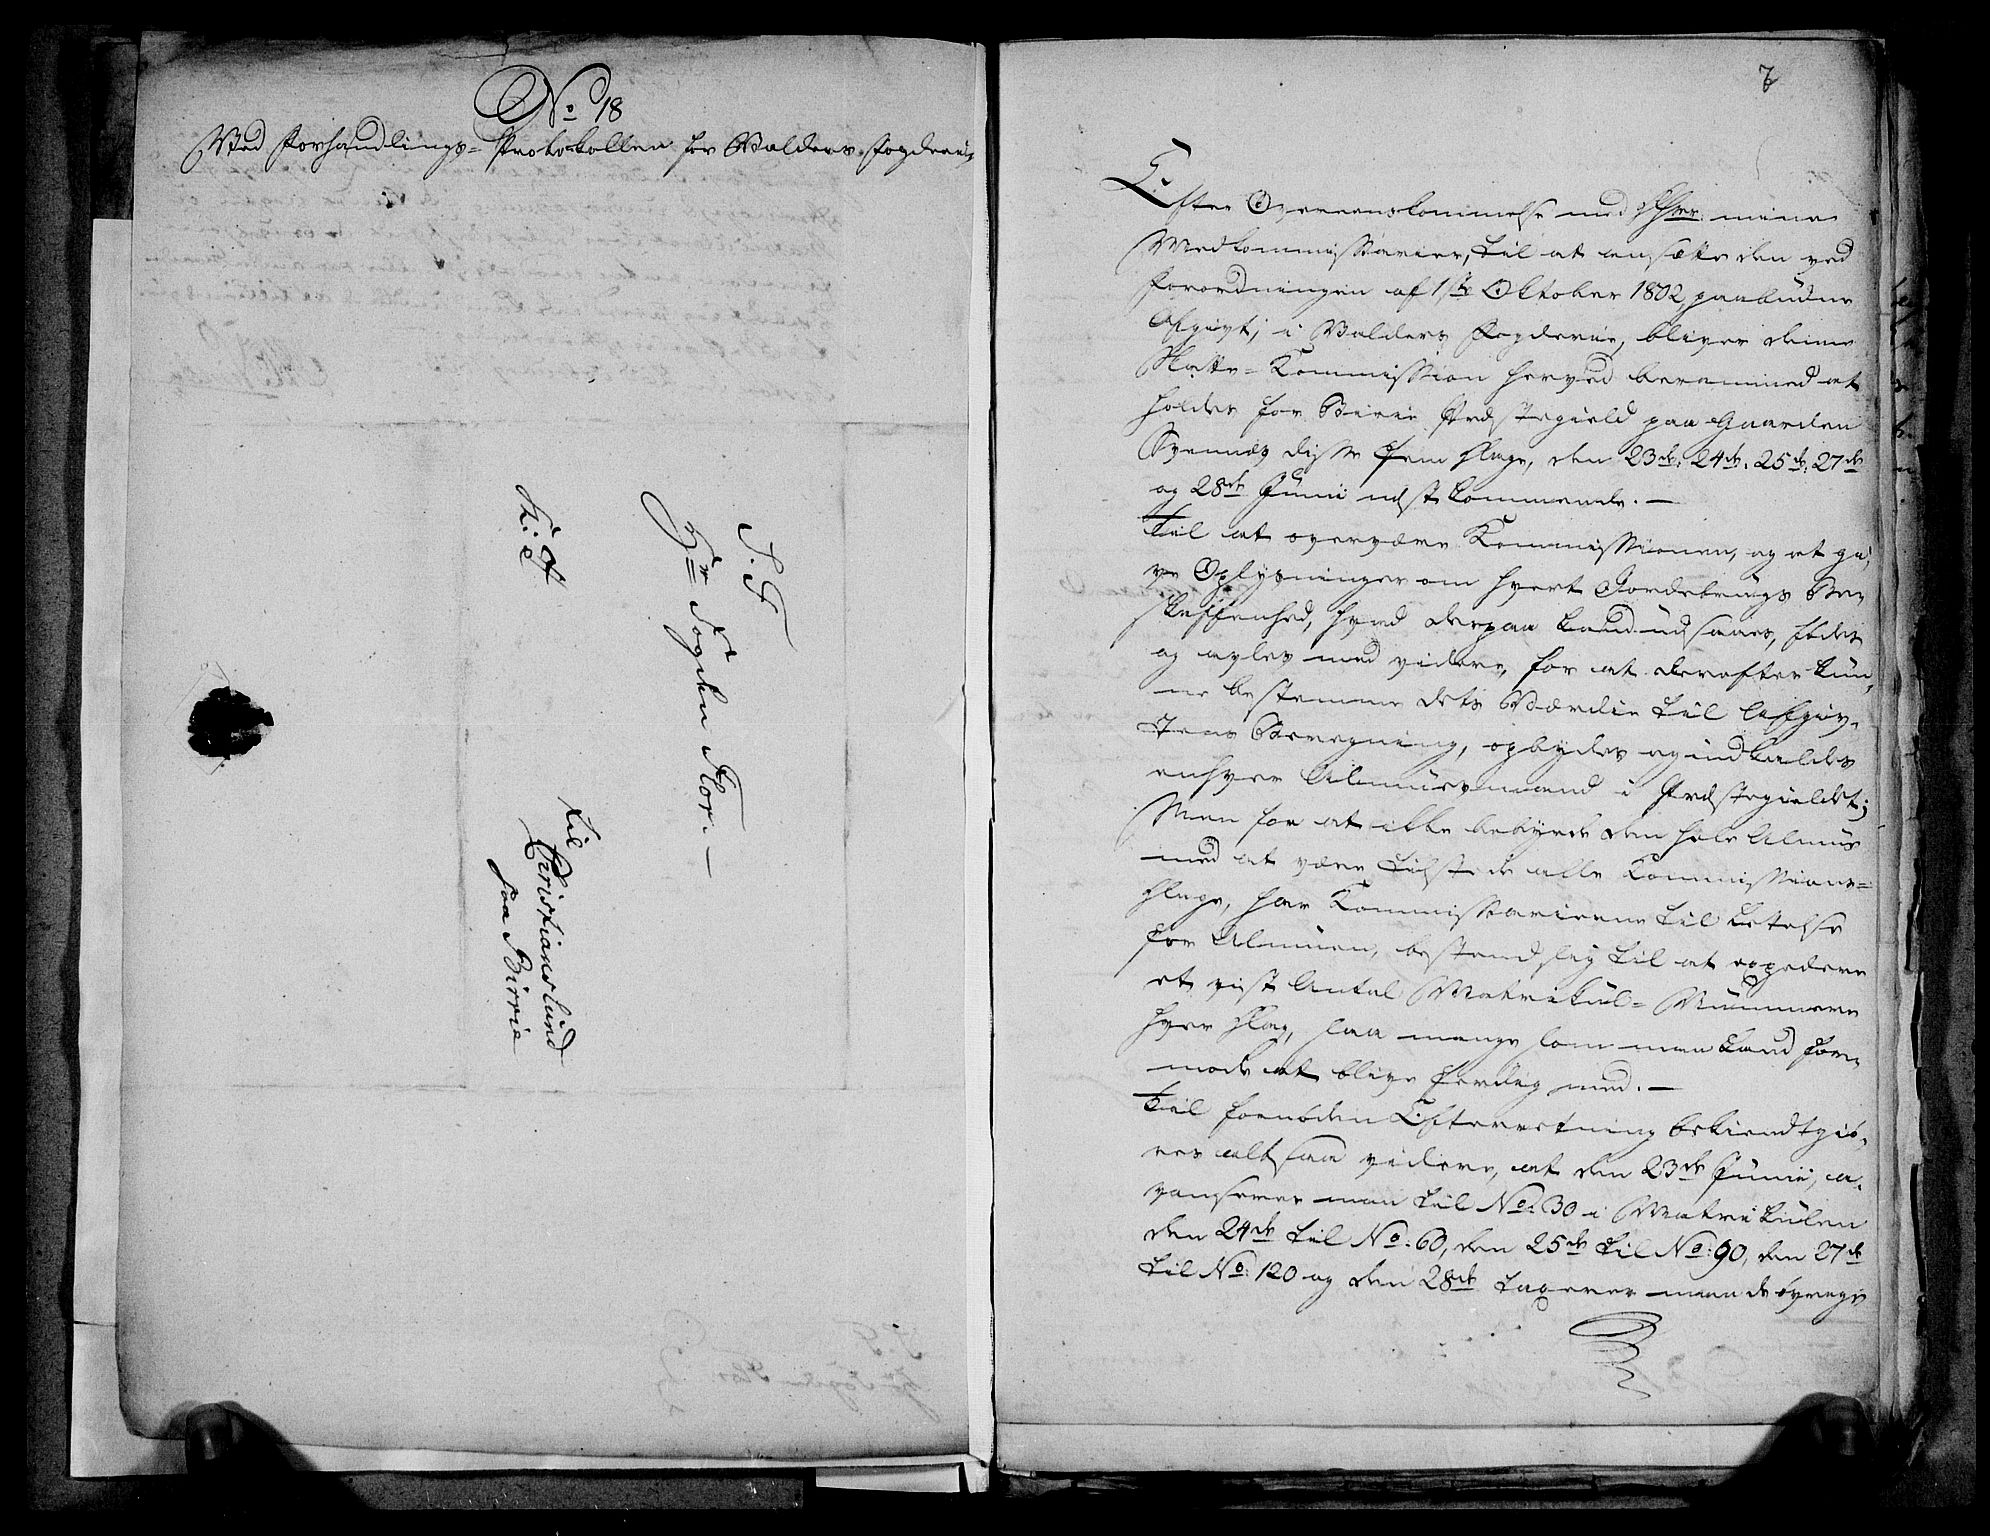 No 18
Ved Forhandlings-Protokollen for Valders Fogderie
S. T.
Hr Fogden Flor.
til
Christianslund
paa Birrie
Efter Overeenskommelse med Hrr: mine
Medkommissarier, til at ansætte den ved
Forordningen af 1ste Oktober 1802, paabudne
Afgivt, i Valders Fogderie, bliver denne
Skatte-Kommission herved berammed at
holdes for Birie Præstegield paa Gaarden
Svennæs disse fem Dage, den 23de, 24de, 25de, 27de
og 28de Junii næstkommende. —
Til at overvære Kommissionen, og at gi,
ve Oplysninger om hvert Jordebrugs Be,
skaffenhed, hvad derpaa kand udsaaes, fødes
og avles med videre, for at derefter kun,
ne bestemme dets Værdie til Afgiv,
tens Beregning, opbydes og indkaldes
enhver Almuesmand i Præstegieldet;
Men for at ikke bebyrde den hele Almue
med at være tilstede alle Kommissions-
Dage, har Kommissarierne til Letelse
for Almuen, bestemt sig til at expedere
et vist Antal Matrikul-Nummere
hver Dag, saa mange som man kand for,
mode at blive færdig med. —
Til fornøden Efterretning bekiendtgiø,
res altsaa videre, at den 23de Junii, a,
vanserer man til No: 30 i Matrikulen
den 24de til No: 60, den 25de til No: 90, den 27de
til No: 120 og den 28de tagerer man de øvrige